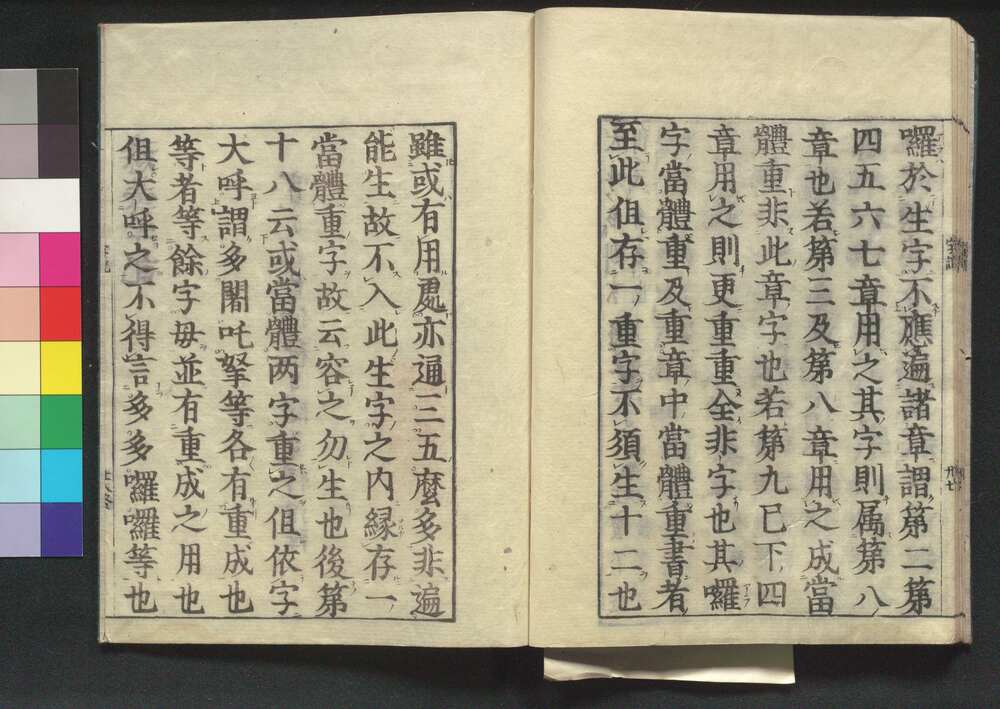 囉於生字不應遍諸章謂第二第
四五六七章用之其字則属第八
章也若第三及第八章用之成當
體重非此章字也若第九已下四
章用之則更重重全非字也其囉
字當體重及重章中當體重書者
至此但存一重字不須生十二也
雖或有用處亦通三五麼多非遍
能生故不入此生字之内縁存一
當體重字故云容之勿生也後第
十八云或當體两字重之但依字
大呼謂多闍吒拏等各有重成也
等者等餘字毋並有重成之用也
但大呼之不得言多多囉囉等也